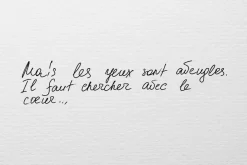 Mais les yeux sont aveugles.
Il faut chercher avec le
cœur...